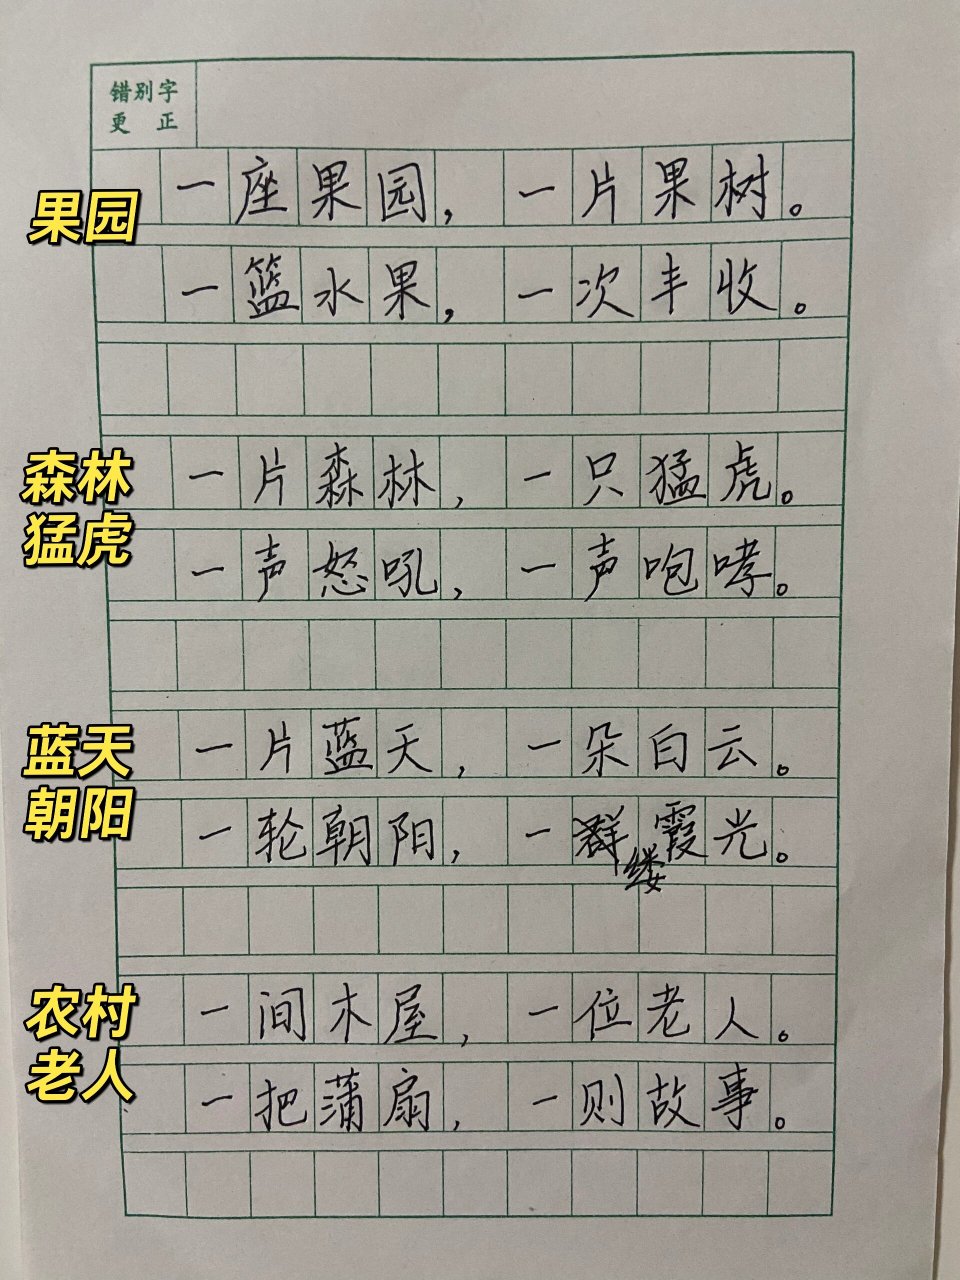 错别字
更正
果园
一座果园，一片果树。
一篮水果，一次丰收。
森林
猛虎
一片森林，一只猛虎。
一声怒吼，一声咆哮。
蓝天
朝阳
一片蓝天，一朵白云。
一轮朝阳，一群霞光。
缕
农村
老人
一间木屋，一位老人。
一把蒲扇，一则故事。